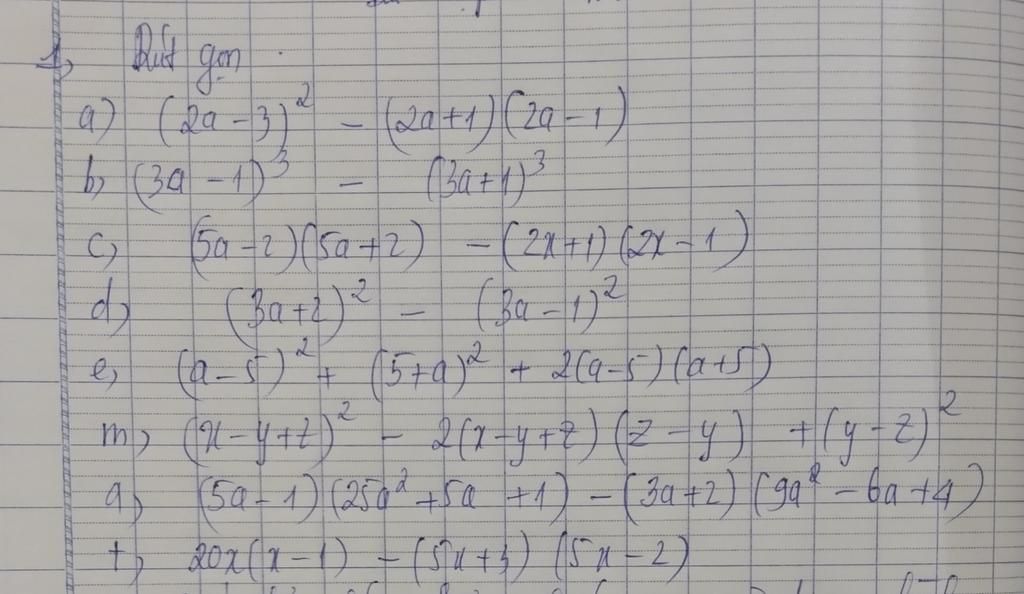 1, Rút gọn
a) (2a - 3)² - (2a+1)(2a-1)
b, (3a - 1)³ - (3a+1)³
c, (5a-2)(5a+2) - (2x+1)(2x-1)
d, (3a+2)² - (3a-1)²
e, (a-5)² + (5+a)² + 2(a-5)(a+5)
m, (x-y+z)² - 2(x-y+z)(z-y) + (y-z)²
q, (5a-1)(25a²+5a+1) - (3a+2)(9a²-6a+4)
t, 20x(x-1) - (5x+3)(5x-2)